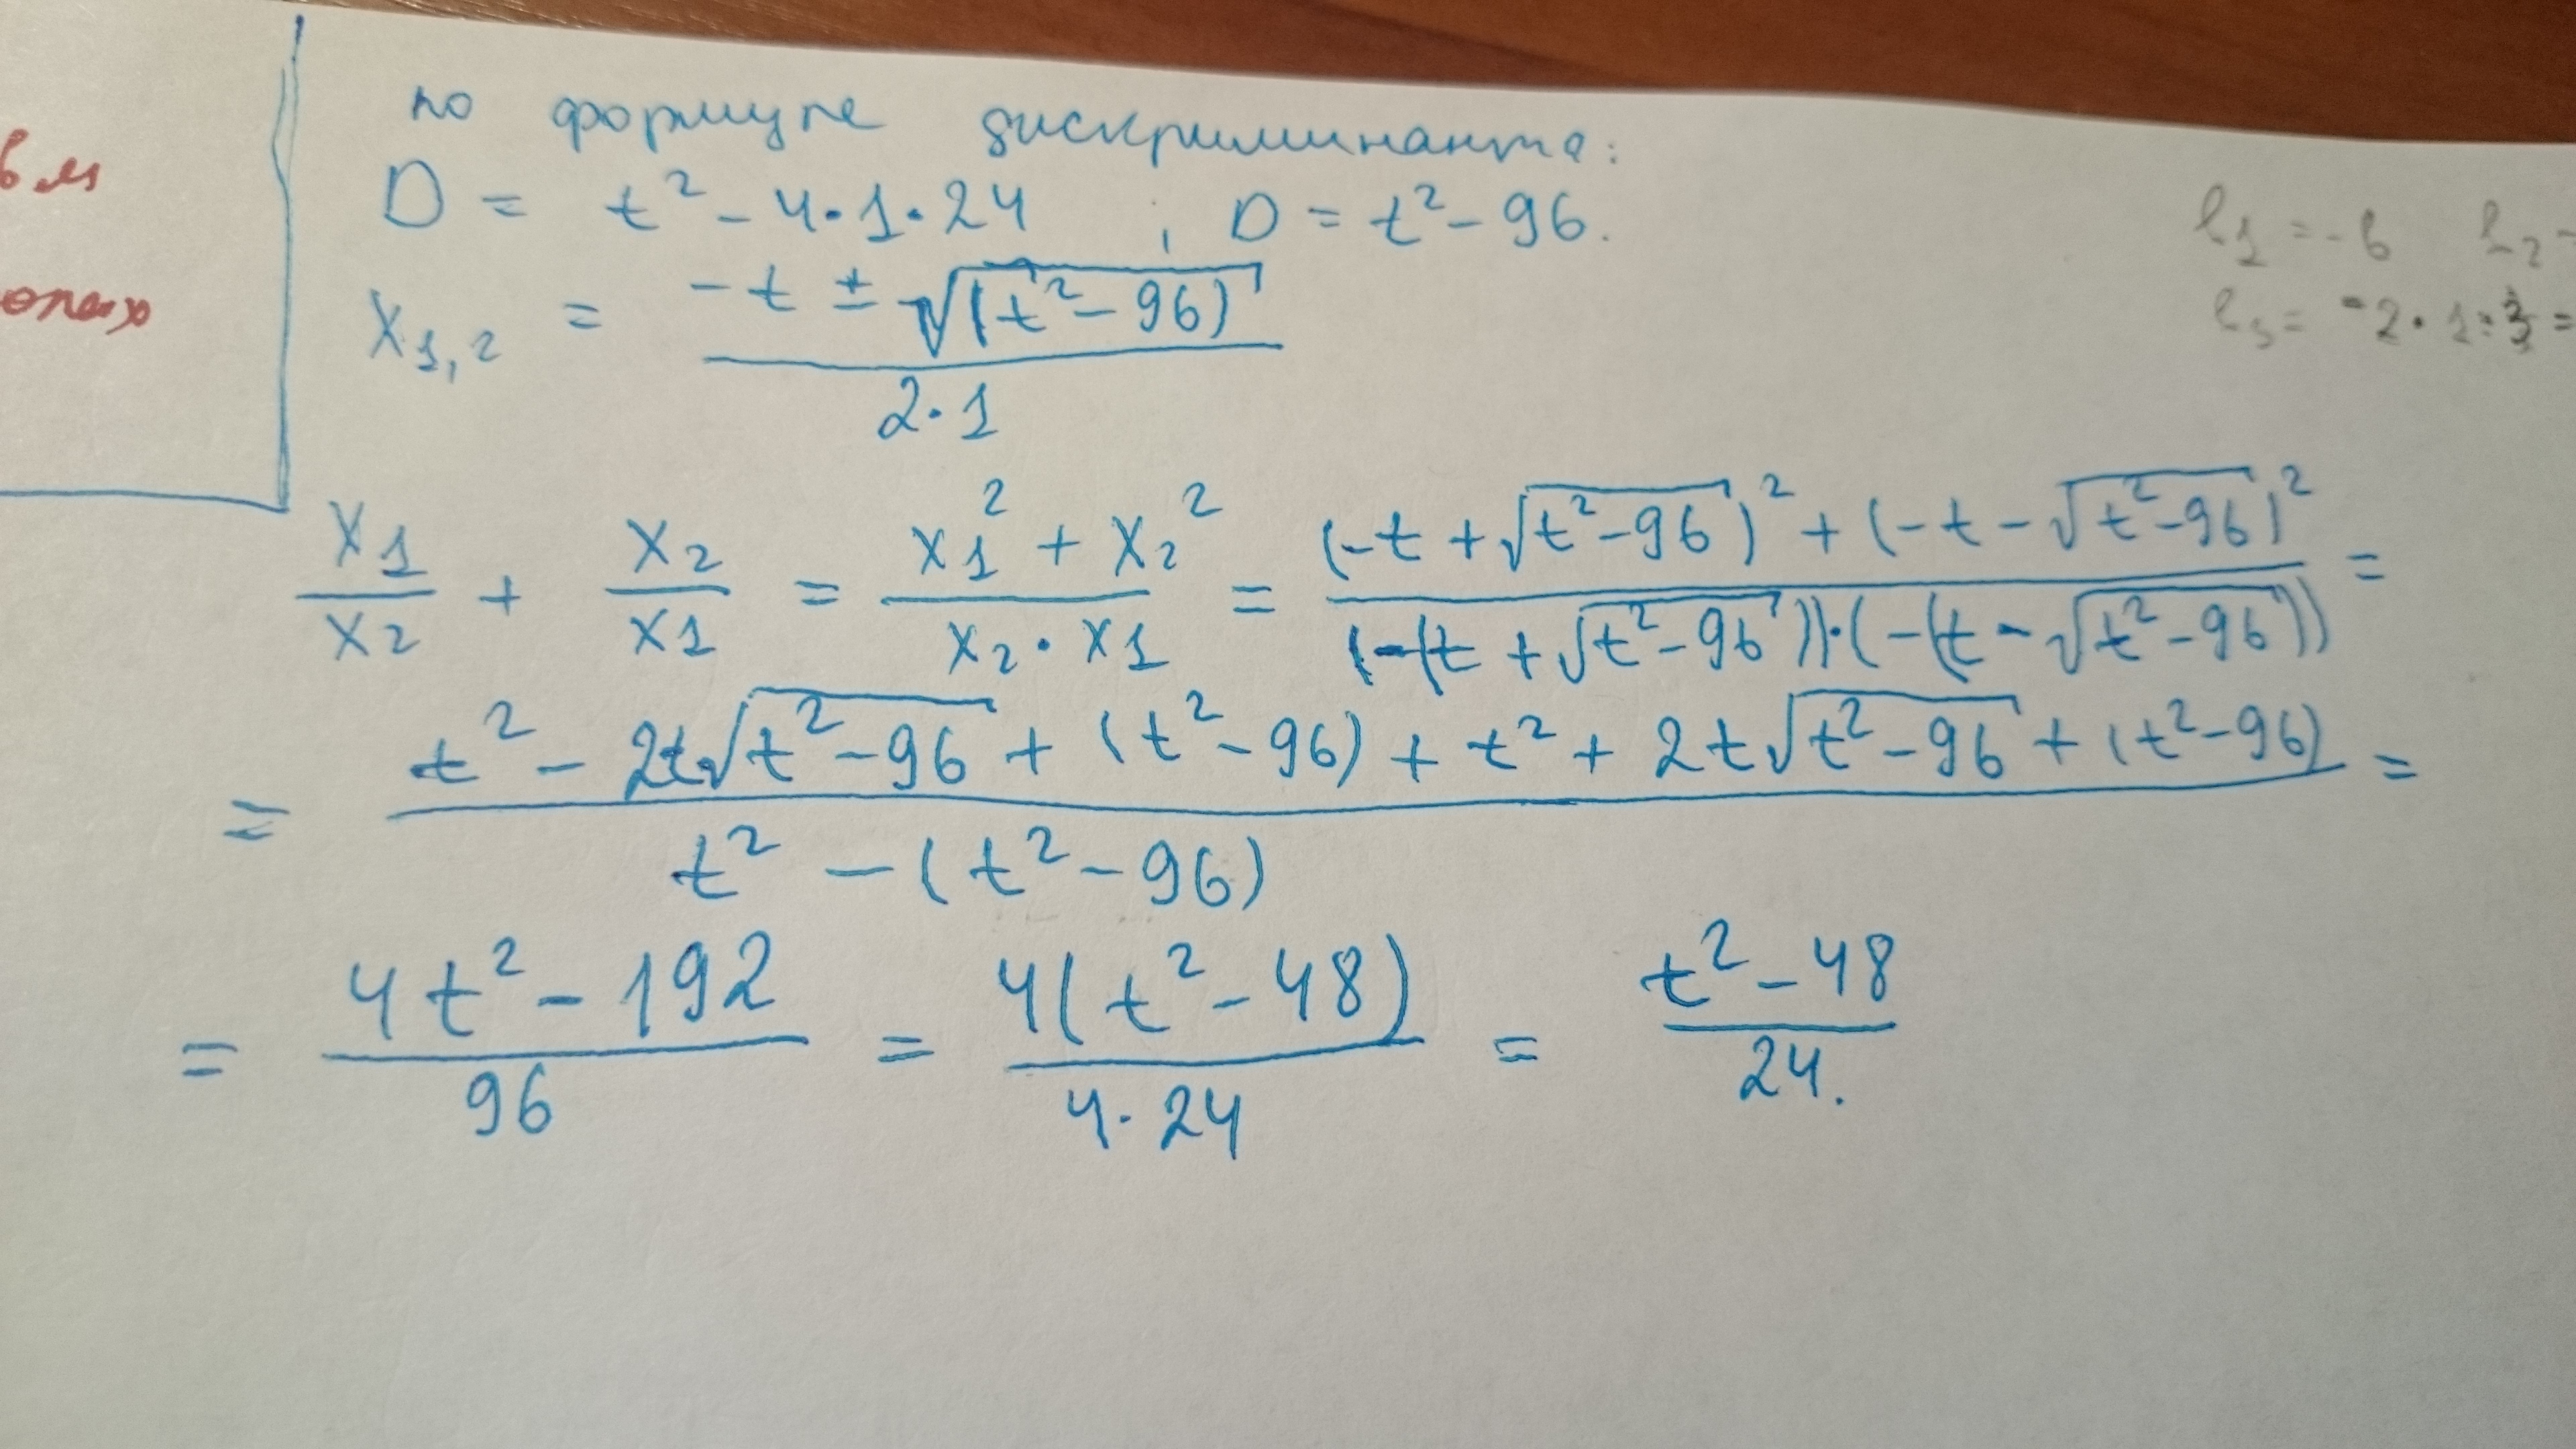 по формуле дискриминанта:
D = t² - 4·1·24 ; D = t² - 96.
x₁,₂ = (-t ± √(t² - 96)) / (2·1)
x₁/x₂ + x₂/x₁ = (x₁² + x₂²) / (x₂ · x₁) = ((-t + √(t² - 96))² + (-t - √(t² - 96))²) / ((-(t + √(t² - 96)))·(-(t - √(t² - 96)))) =
= (t² - 2t√(t² - 96) + (t² - 96) + t² + 2t√(t² - 96) + (t² - 96)) / (t² - (t² - 96)) =
= (4t² - 192) / 96 = 4(t² - 48) / (4·24) = (t² - 48) / 24.